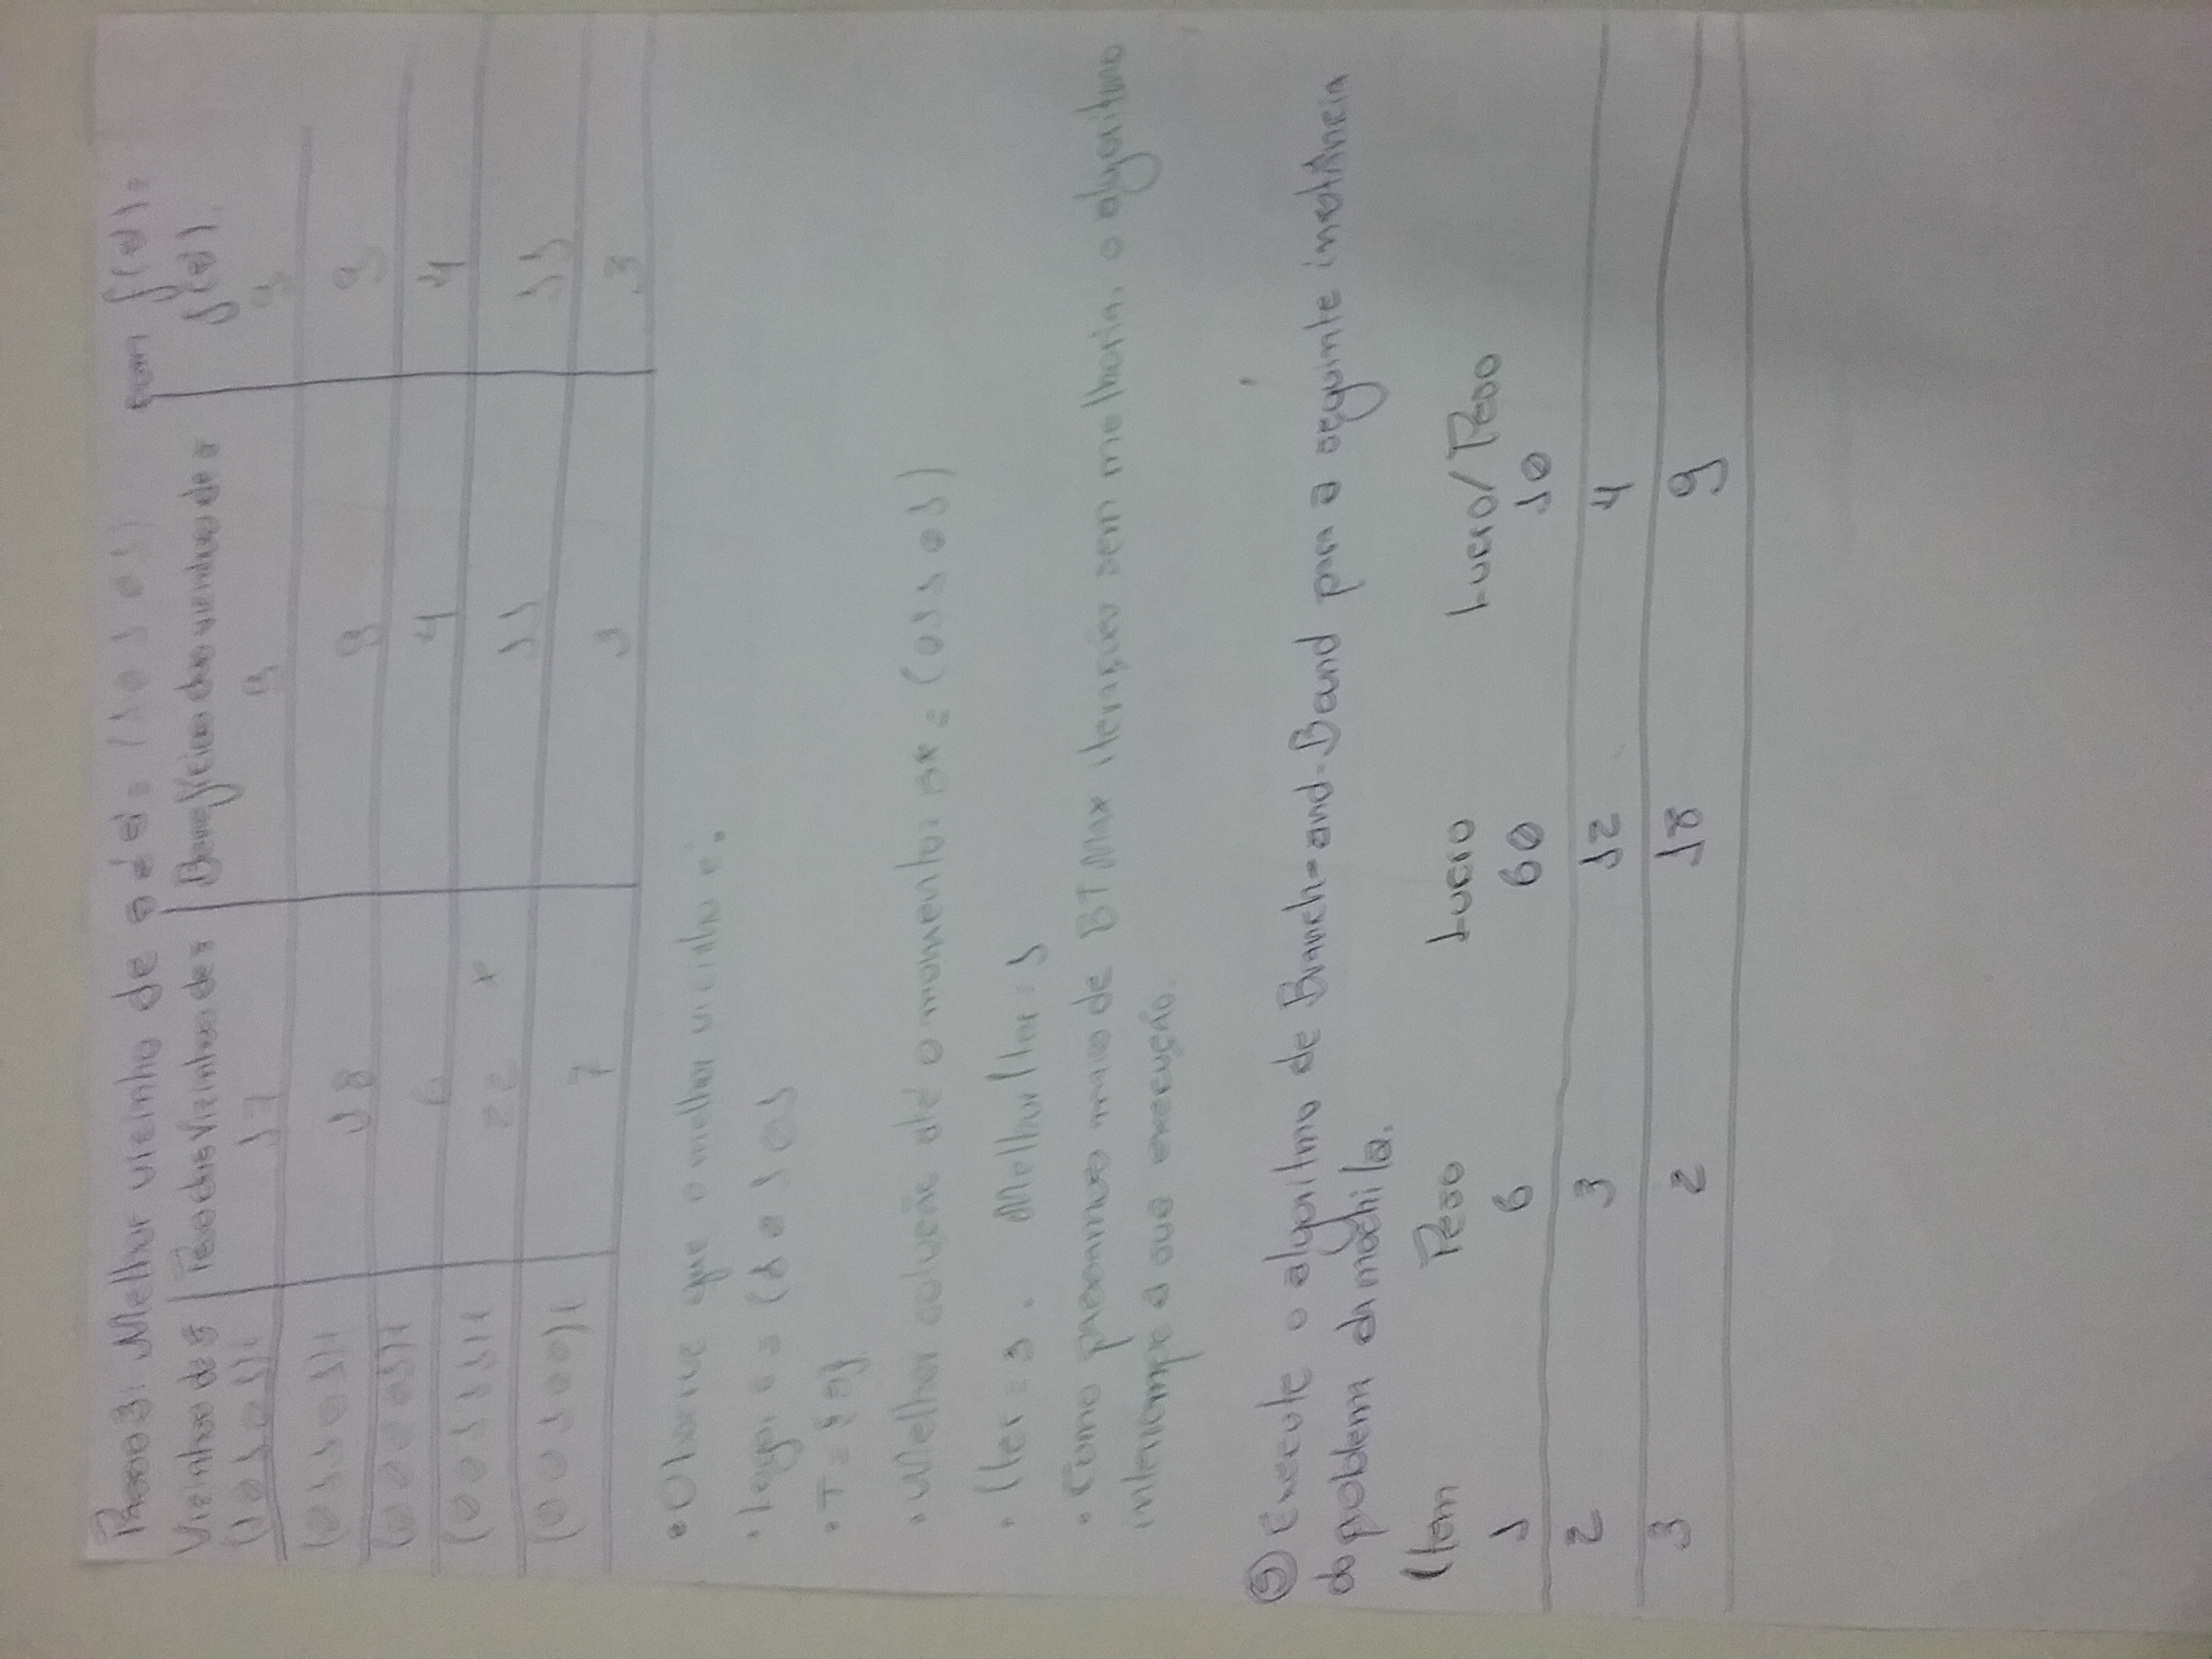 Passo 3: Melhor vizinho de s é s' = (1 0 1 0 1) com f(s') =
Vizinhos de s Peso dos Vizinhos de s Benefícios dos vizinhos de s f(s').
(1 0 1 0 1)t 17 9 9
(0 1 1 0 1)t 18 9 9
(0 0 0 0 1)t 6 4 4
(0 0 1 1 1)t 22 x 11 11
(0 0 1 0 0)t 7 3 3
• Observe que o melhor vizinho é:
• Logo, s = (1 0 1 0 1
• T = {
• Melhor solução até o momento: s* = (0 1 1 0 1)
• Iter = 3. MelhorIter = 1
• Como passamos mais de BTMax iterações sem melhoria, o algoritmo
interrompe a sua execução.
Execute o algoritmo de Branch-and-Bound para a seguinte instância
do problema da mochila.
Item Peso Lucro Lucro/Peso
1 6 60 10
2 3 12 4
3 2 18 9